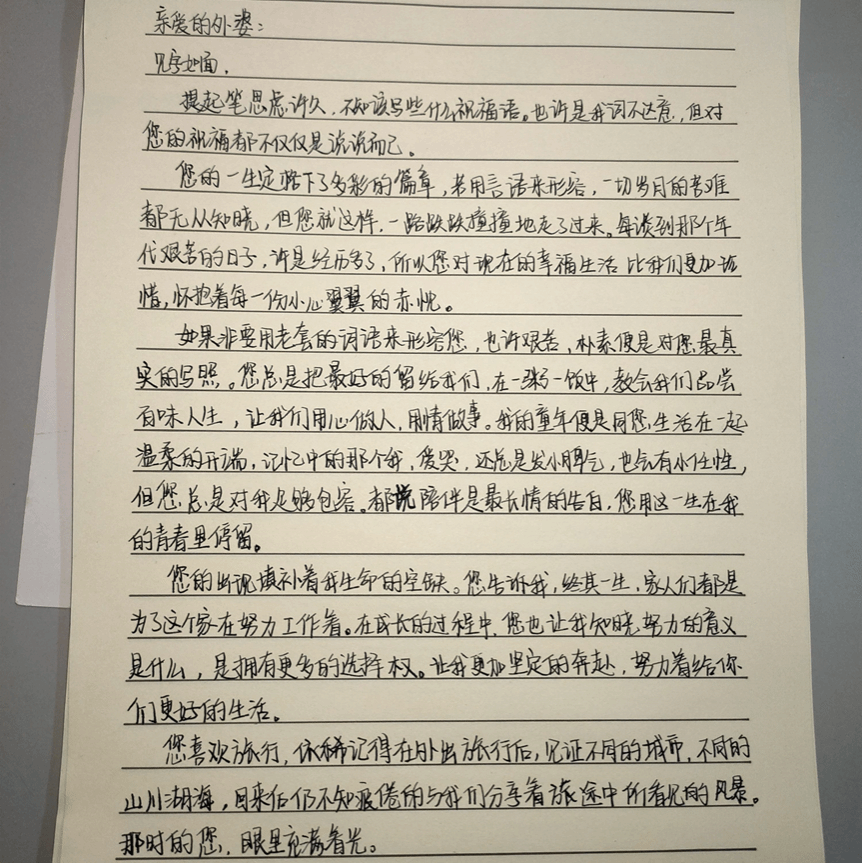 亲爱的外婆：
见字如面，
提起笔思虑许久，不知该写些什么祝福语。也许是我词不达意，但对
您的祝福都不仅仅是说说而已。
您的一生定踏下了多彩的篇章，若用言语来形容，一切岁月的苦难
都无从知晓，但您就这样，一路跌跌撞撞地走了过来。每谈到那个年
代艰苦的日子，许是经历多了，所以您对现在的幸福生活比我们更加珍
惜，怀抱着每一份小心翼翼的赤忱。
如果非要用老套的词语来形容您，也许艰苦，朴素便是对您最真
实的写照。您总是把最好的留给我们，在一粥一饭中，教会我们品尝
百味人生，让我们用心做人，用情做事。我的童年便是同您生活在一起
温柔的开端，记忆中的那个我，爱哭，还总是发小脾气，也会有小任性，
但您总是对我足够包容。都说陪伴是最长情的告白，您用这一生在我
的青春里停留。
您的出现填补着我生命的空缺。您告诉我，终其一生，家人们都是
为了这个家在努力工作着。在成长的过程中，您也让我知晓努力的意义
是什么，是拥有更多的选择权。让我更加坚定的奔赴，努力着给你
们更好的生活。
您喜欢旅行，依稀记得在外出旅行后，见证不同的城市，不同的
山川湖海，回来后仍不知疲倦的与我们分享着旅途中所看见的风景。
那时的您，眼里充满着光。